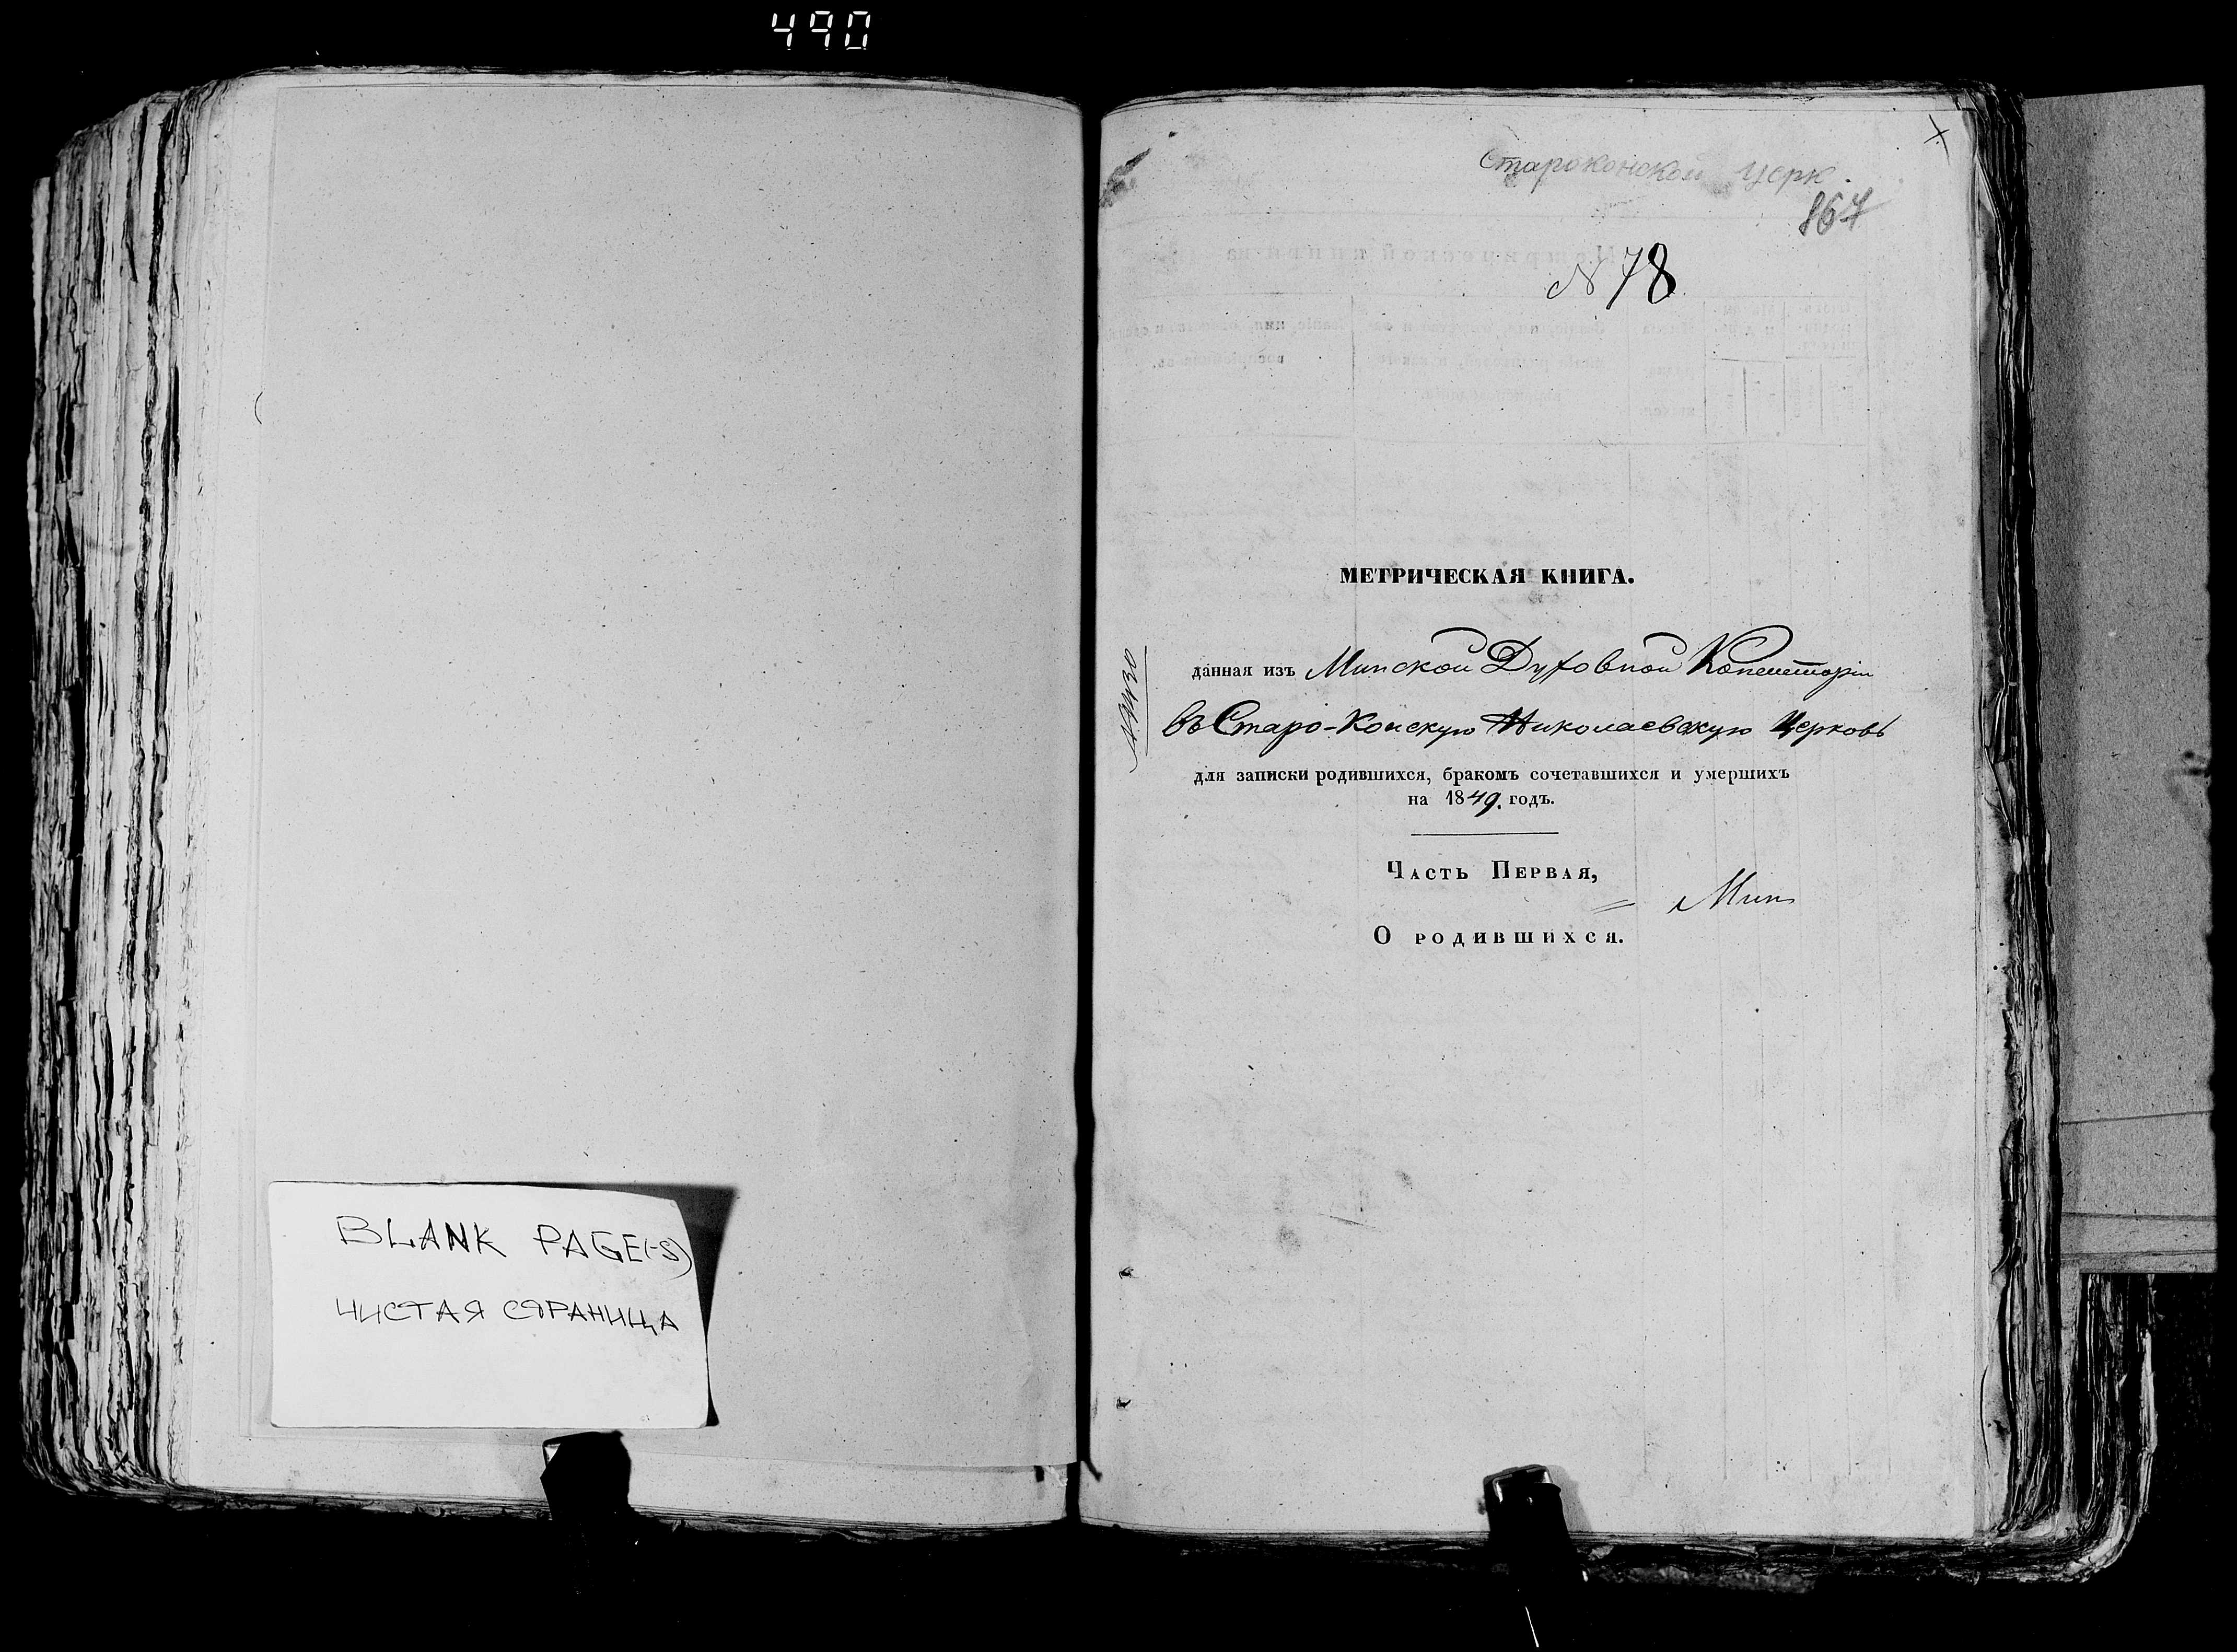 490
BLANK PAGE(-S)
ЧИСТАЯ СТРАНИЦА
Староконской церк.
867
N 78
МЕТРИЧЕСКАЯ КНИГА.
данная изъ Минской Духовной Консисторіи
въ Старо-Конскую Николаевскую Церковь
для записки родившихся, бракомъ сочетавшихся и умершихъ
на 1849. годъ.
Часть Первая,
О родившихся.